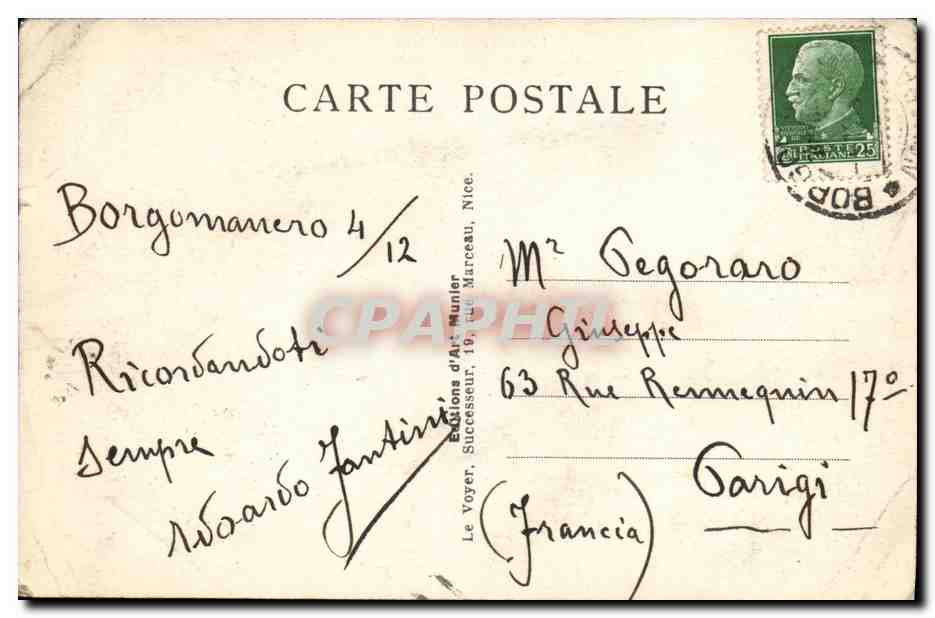 CARTE POSTALE
POSTE
ITALIANE 25
BORGO
Borgomanero 4/12
Ricordandoti
sempre
Edoardo Fantini
Editions d'Art Munier
Le Voyer, Successeur, 19, rue Marceau, Nice.
CPAPHIL
Mr Pegoraro
Giuseppe
63 Rue Rennequin 17°
Parigi
(Francia)